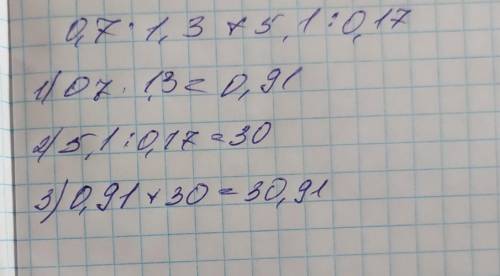 0,7 · 1,3 + 5,1 : 0,17
1) 0 7 · 1,3 = 0,91
2) 5,1 : 0,17 = 30
3) 0,91 + 30 = 30,91